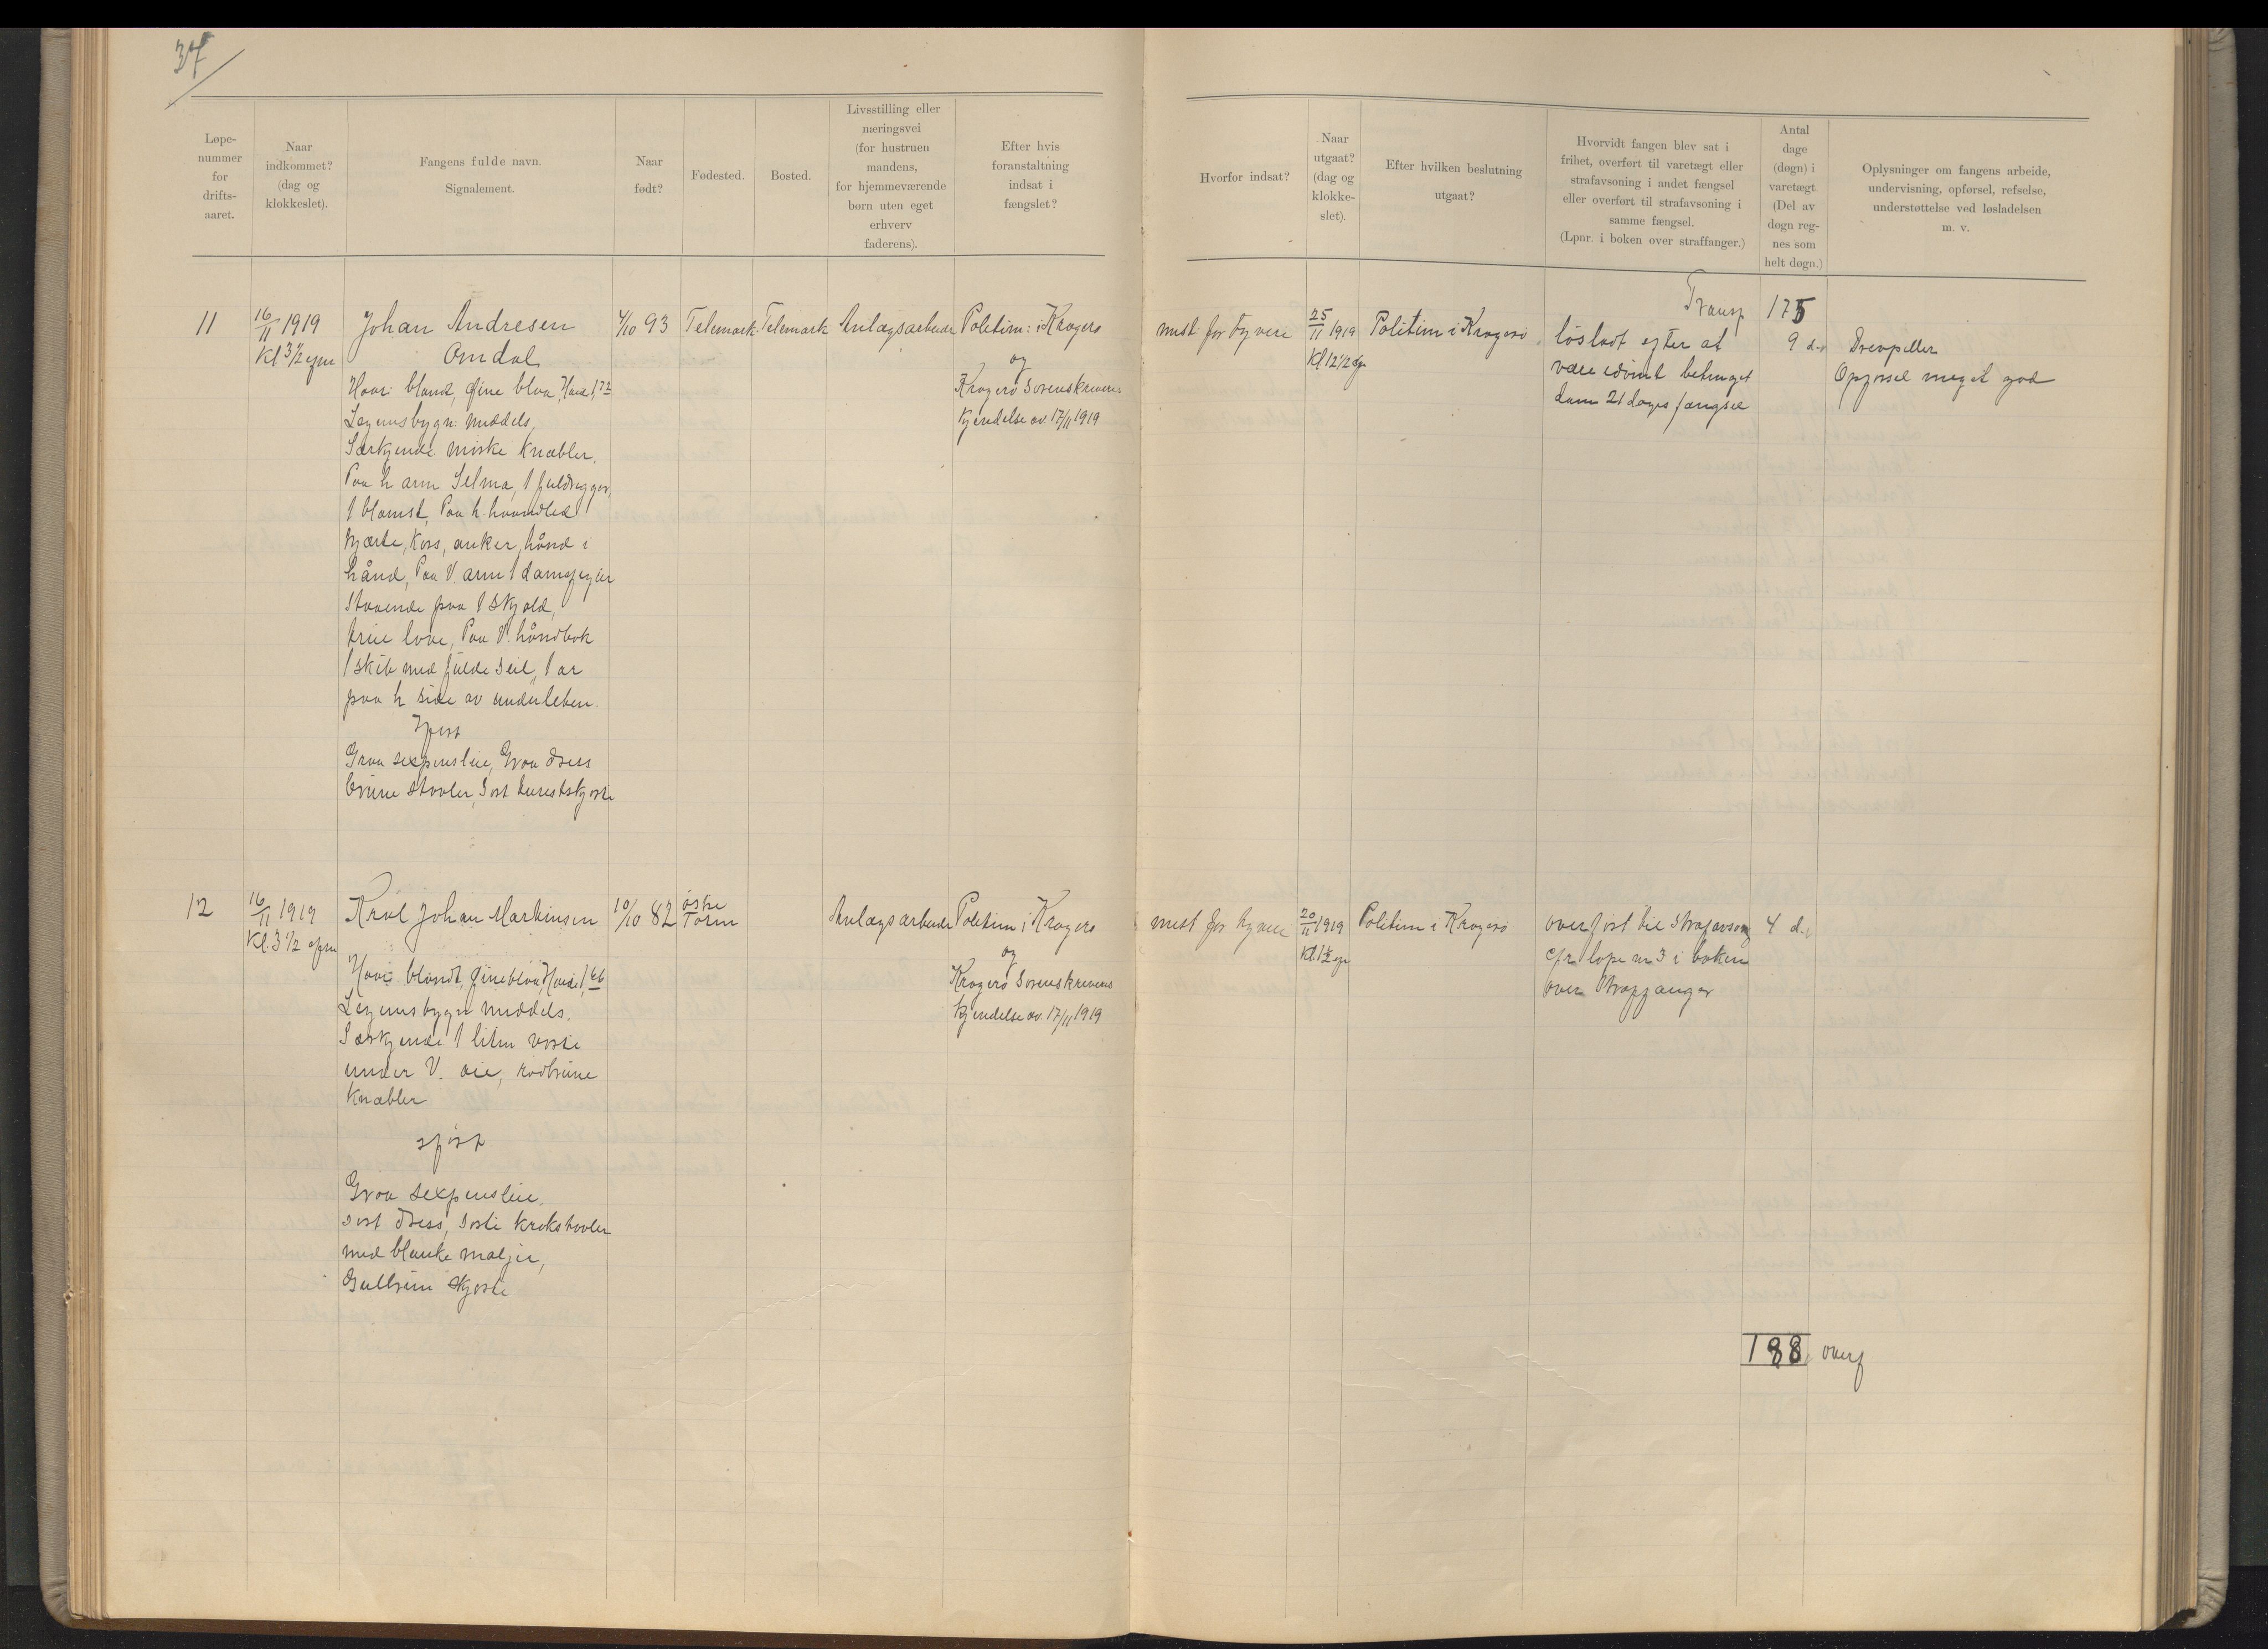 37
Løpe-
nummer
for
drifts-
aaret.
Naar
indkommet?
(dag og
klokkeslet).
Fangens fulde navn.
Signalement.
Naar
født?
Fødested.
Bosted.
Livsstilling eller
næringsvei
(for hustruen
mandens,
for hjemmeværende
børn uten eget
erhverv
faderens).
Efter hvis
foranstaltning
indsat i
fængslet?
Hvorfor indsat?
Naar
utgaat?
(dag og
klokke-
slet).
Efter hvilken beslutning
utgaat?
Hvorvidt fangen blev sat i
frihet, overført til varetægt eller
strafavsoning i andet fængsel
eller overført til strafavsoning i
samme fængsel.
(Lpnr. i boken over straffanger.)
Antal
dage
(døgn) i
varetægt
(Del av
døgn reg-
nes som
helt døgn.)
Oplysninger om fangens arbeide,
undervisning, opførsel, refselse,
understøttelse ved løsladelsen
m. v.
Transp 175
11
16/11 1919
Kl 3 1/2 efm
Johan Andresen
Omdal
Haar: blond, Øine blaa, Høide 1,72
Legemsbygn: middels,
Særkjende mørke knæbler.
Paa h arm Selma, 1 fuldrigger,
1 blomst, Paa h. haandled
hjærte, Kors, anker, hånd i
hånd, Paa V. arm 1 damefigur
staaende paa 1 skjold,
true love, Paa V. håndbak
1 skib med fulde seil, 1 ar
paa h side av underleben.
Iført
Graa sexpenslue, Graa dress
brune støvler, Sort turistskjorte
4/10 93
Telemark
Telemark
Anlægsarbeider
Politim: i Kragerø
og
Kragerø Sorenskrivers
kjendelse av 17/11 1919
mist. for tyveri
25/11 1919
Kl 12 1/2
Politim i Kragerø
løsladt efter at
være idømt betinget
dom 21 dages fængsel
9 d.
Drevpiller
Opførsel meget god
12
16/11 1919
Kl. 3 1/2 efm
Karl Johan Martinsen
Haar: blondt, Øine blaa Høide 1,66
Legemsbygn middels.
Særkjende 1 liten vorte
under V. øie, rødbrune
Knæbler
iført
Graa sexpenslue,
sort dress, sorte krokstøvler
med blanke maljer,
Gulbrun skjorte
10/10 82
østre
Toten
Anlægsarbeider
Politim i Kragerø
og
Kragerø Sorenskrivers
kjendelse av. 17/11 1919
mist for tyveri
20/11 1919
Politim i Kragerø
overført til Strafavsong
cfr løpe nr 3 i boken
over Straffanger
4 d.
188 overf